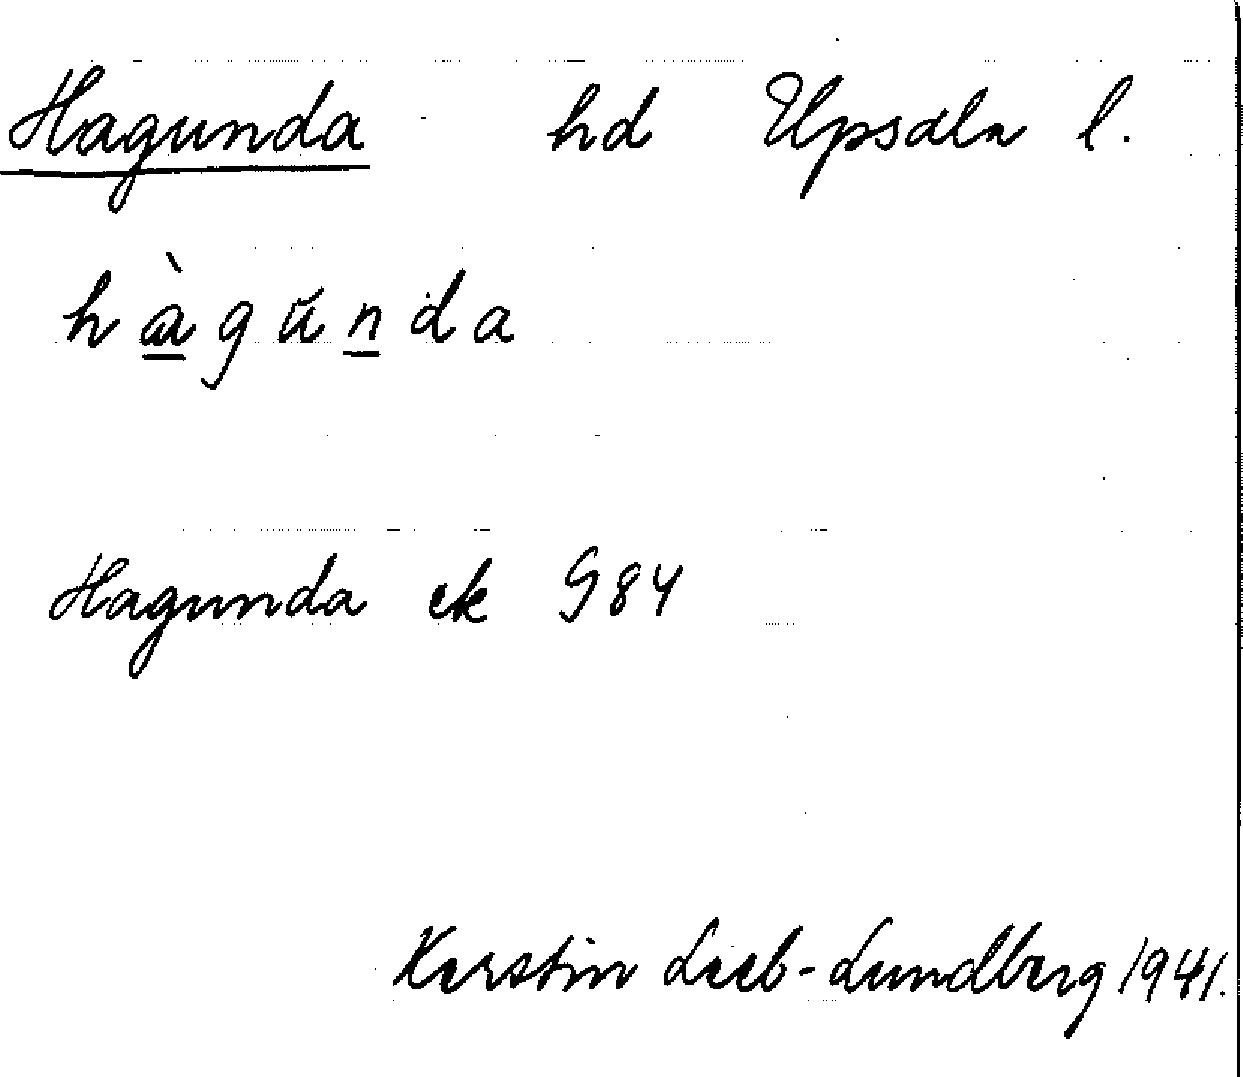 Hagunda hd Upsala l.
hàgŭnda
Hagunda ek G84
Kerstin Leeb-Lundberg 1941.